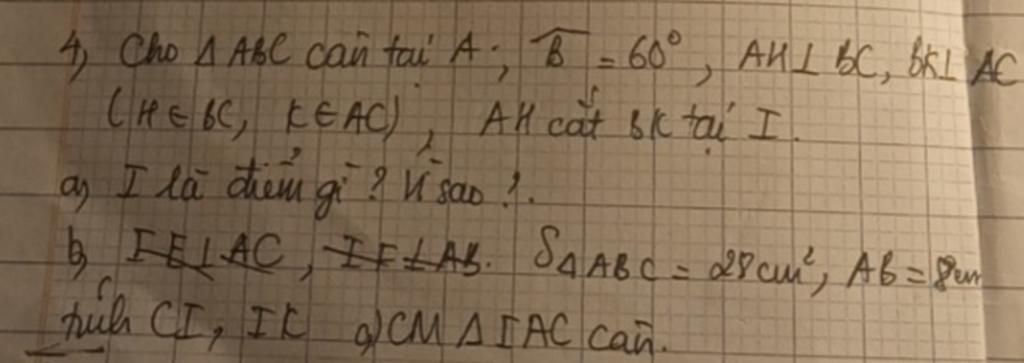 4, Cho Δ ABC cân tại A ; B̂ = 60°, AH ⊥ BC, BK ⊥ AC
(H ∈ BC, K ∈ AC), AH cắt BK tại I.
a, I là điểm gì? Vì sao?.
b, IE ⊥ AC, IF ⊥ AB. S Δ ABC = 28 cm², AB = 8cm
tính CI, IK c) CM Δ IAC cân.